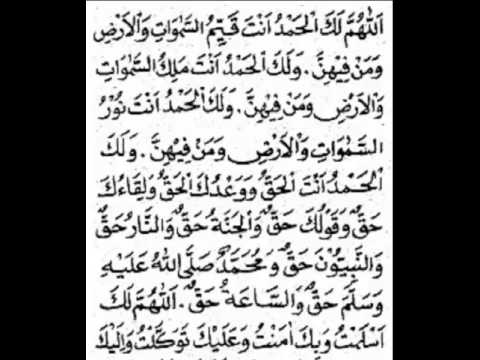 اَللّٰهُمَّ لَكَ الْحَمْدُ اَنْتَ قَيِّمُ السَّمٰوَاتِ وَالْاَرْضِ
وَمَنْ فِيْهِنَّ . وَلَكَ الْحَمْدُ اَنْتَ مَلِكُ السَّمٰوَاتِ
وَالْاَرْضِ وَمَنْ فِيْهِنَّ . وَلَكَ الْحَمْدُ اَنْتَ نُوْرُ
السَّمٰوَاتِ وَالْاَرْضِ وَمَنْ فِيْهِنَّ . وَلَكَ
الْحَمْدُ اَنْتَ الْحَقُّ وَوَعْدُكَ الْحَقُّ وَلِقَاءُكَ
حَقٌّ وَقَوْلُكَ حَقٌّ وَالْجَنَّةُ حَقٌّ وَالنَّارُ حَقٌّ
وَالنَّبِيُّوْنَ حَقٌّ وَمُحَمَّدٌ صَلَّى اللهُ عَلَيْهِ
وَسَلَّمَ حَقٌّ وَالسَّاعَةُ حَقٌّ . اَللّٰهُمَّ لَكَ
اَسْلَمْتُ وَبِكَ اٰمَنْتُ وَعَلَيْكَ تَوَكَّلْتُ وَاِلَيْكَ